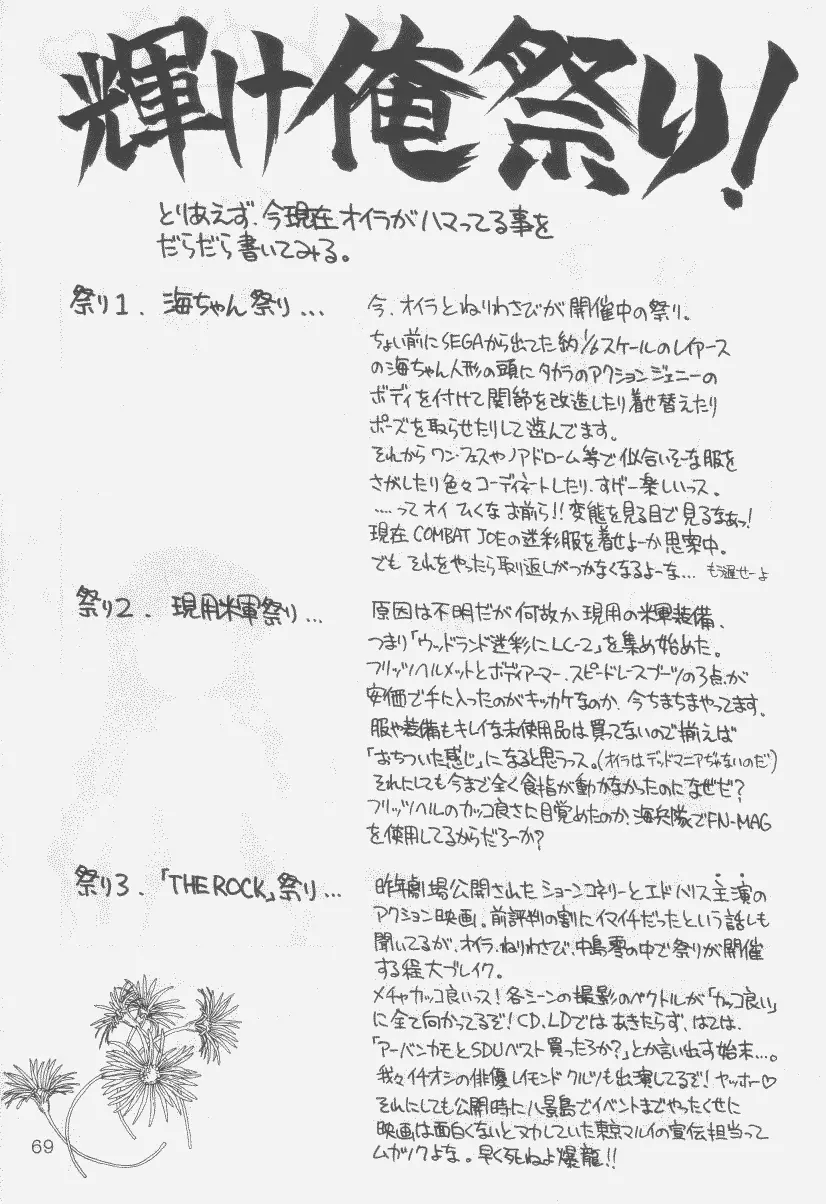 輝け俺祭り!
とりあえず、今現在オイラがハマってる事を
だらだら書いてみる。
祭り1. 海ちゃん祭り...
今、オイラとねりわさびが開催中の祭り。
ちょい前にSEGAから出てた約1/6スケールのレイアース
の海ちゃん人形の頭にタカラのアクションジェニーの
ボディを付けて関節を改造したり着せ替えたり
ポーズを取らせたりして遊んでます。
それからワン・フェスやノアドローム等で似合いそーな服を
さがしたり色々コーディネートしたり、すげー楽しいっス。
.....って オイ ひくな お前ら!! 変態を見る目で見るなぁっ!
現在 COMBAT JOEの迷彩服を着せよーか思案中。
でも それをやったら取り返しがつかなくなるよーな... もう遅せーよ
祭り2. 現用米軍祭り...
原因は不明だが何故か、現用の米軍装備、
つまり「ウッドランド迷彩にLC-2」を集め始めた。
フリッツヘルメットとボディアーマー、スピードレースブーツの3点が
安価で手に入ったのがキッカケなのか、今ちまちまやってます。
服や装備もキレイな未使用品は買ってないので揃えば
「おちついた感じ」になると思うっス。(オイラはデッドマニアぢゃないのだ)
それにしても今まで全く食指が動かなかったのになぜだ?
フリッツヘルのカッコ良さに目覚めたのか、海兵隊でFN-MAG
を使用してるからだろーか?
祭り3. 「THE ROCK」祭り...
昨年劇場公開されたショーンコネリーとエドハリス主演の
アクション映画。前評判の割にイマイチだったという話しも
聞いてるが、オイラ、ねりわさび、中島零の中で祭りが開催
する程大ブレイク。
メチャカッコ良いっス! 各シーンの撮影のベクトルが「カッコ良い」
に全て向かってるぞ! CD、LDではあきたらず、はては、
「アーバンカモとSDUベスト買ったろか?」とか言い出す始末...。
我々イチオシの俳優レイモンド クルツも出演してるぞ! ヤッホー♡
それにしても公開時に八景島でイベントまでやったくせに
映画は面白くないとヌカしていた東京マルイの宣伝担当って
ムカツクよな。早く死ねよ爆龍!!
69